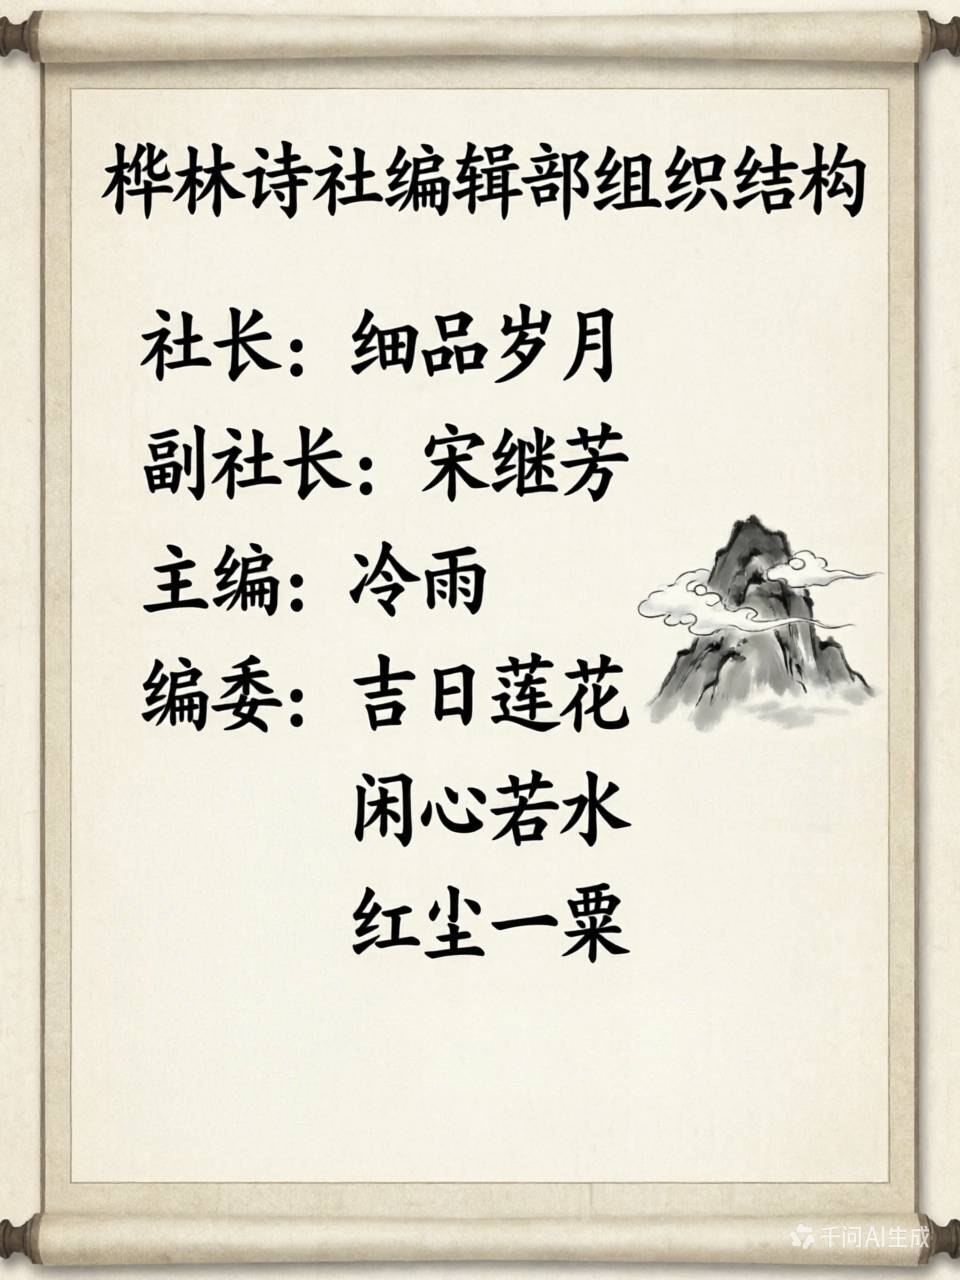 桦林诗社编辑部组织结构
社长：细品岁月
副社长：宋继芳
主编：冷雨
编委：吉日莲花
闲心若水
红尘一粟
千问AI生成